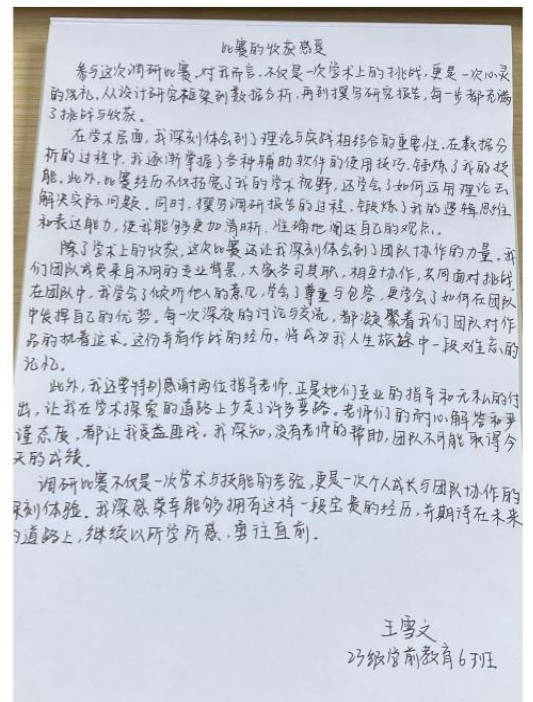 比赛的收获感受
参与这次调研比赛,对我而言,不仅是一次学术上的挑战,更是一次心灵
的洗礼。从设计研究框架到数据分析,再到撰写研究报告,每一步都充满
了挑战与收获。
在学术层面,我深刻体会到了理论与实践相结合的重要性。在数据分
析的过程中,我逐渐掌握了各种辅助软件的使用技巧,锤炼了我的技
能。此外,比赛经历不仅拓宽了我的学术视野,还学会了如何运用理论去
解决实际问题。同时,撰写调研报告的过程,锻炼了我的逻辑思维
和表达能力,使我能够更加清晰、准确地阐述自己的观点。
除了学术上的收获,这次比赛还让我深刻体会到了团队协作的力量。我
们团队成员来自不同的专业背景,大家各司其职,相互协作,共同面对挑战。
在团队中,我学会了倾听他人的意见,学会了尊重与包容,更学会了如何在团队
中发挥自己的优势。每一次深夜的讨论与交流,都凝聚着我们团队对作
品的执着追求。这份并肩作战的经历,将成为我人生旅途中一段难忘的
记忆。
此外,我还要特别感谢两位指导老师。正是她们专业的指导和无私的付
出,让我在学术探索的道路上少走了许多弯路。老师们的耐心解答和严
谨态度,都让我受益匪浅。我深知,没有老师的帮助,团队不可能取得今
天的成绩。
调研比赛不仅是一次学术与技能的考验,更是一次个人成长与团队协作的
深刻体验。我深感荣幸能够拥有这样一段宝贵的经历,并期待在未来
的道路上,继续以所学所感,勇往直前。
王雪文
23级学前教育6班